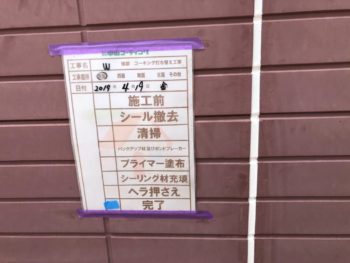 工事名 W 様邸 コーキング打ち替え工事
日付 2019年4月19日
施工前
シール撤去
清掃
バックアップ材及びボンドブレーカー
プライマー塗布
シーリング材充填
ヘラ押さえ
完了